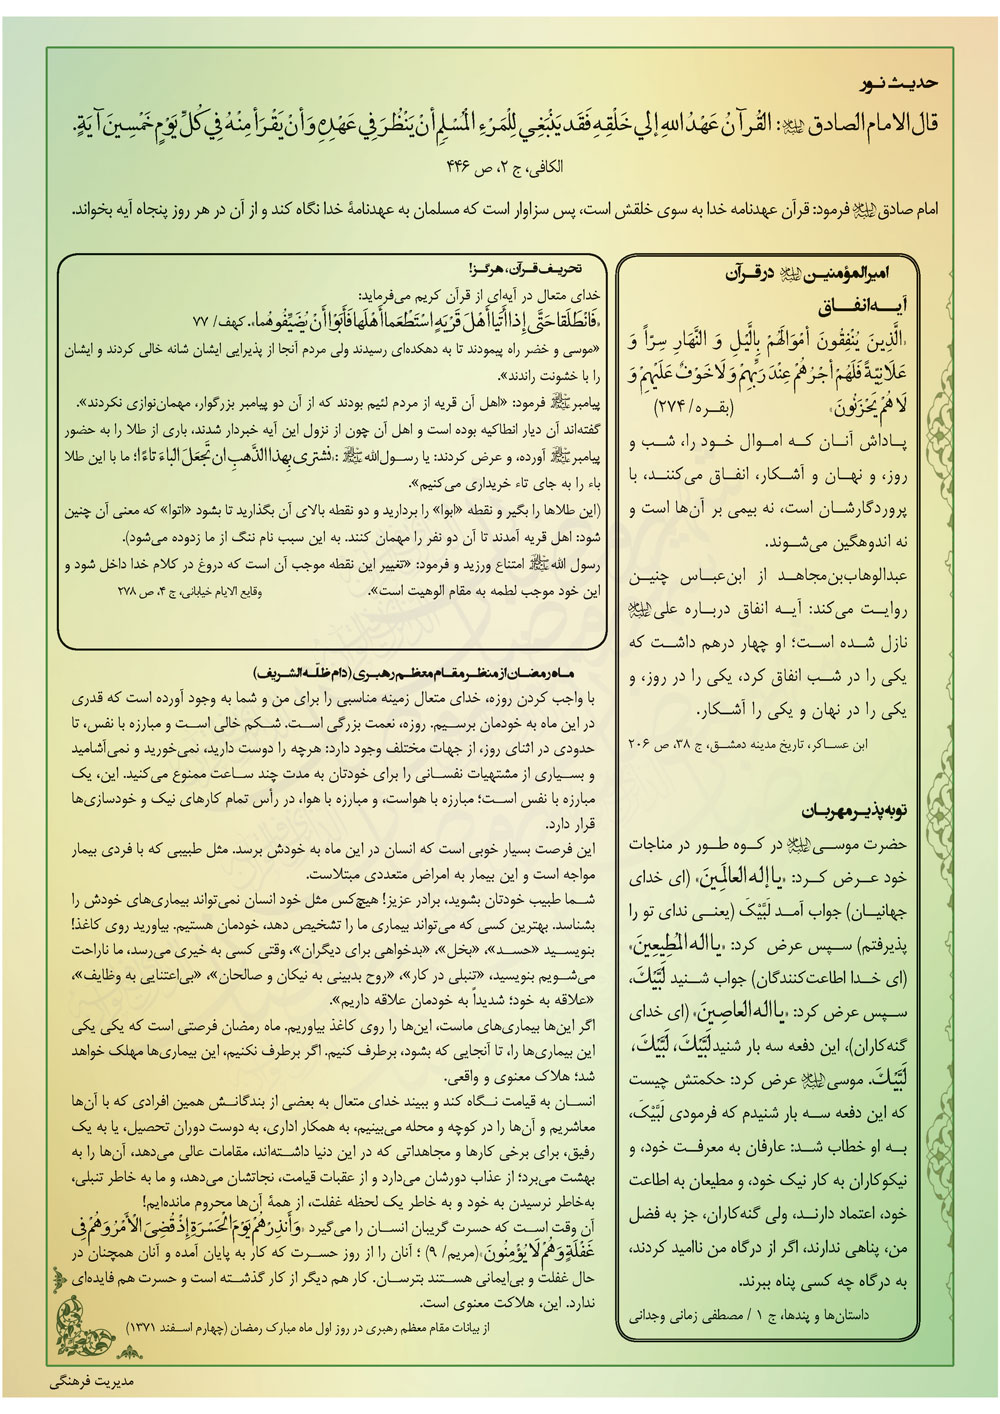 حدیث نور
قال الامام الصادق علیه‌السلام: القُرآنُ عَهْدُ اللهِ إلي خَلْقِهِ فَقَد يَنْبَغِي لِلْمَرْءِ المُسْلِمِ أنْ يَنْظُرَ فِي عَهْدِهِ وَ أنْ يَقْرَأ مِنْهُ فِي كُلِّ يَوْمٍ خَمْسِينَ آيَةٍ.
الکافی، ج ۲، ص ۴۴۶
امام صادق علیه‌السلام فرمود: قرآن عهدنامه خدا به سوی خلقش است، پس سزاوار است که مسلمان به عهدنامۀ خدا نگاه کند و از آن در هر روز پنجاه آیه بخواند.
امیرالمؤمنین علیه‌السلام در قرآن
آیه انفاق
«الَّذِينَ يُنْفِقُونَ أمْوَالَهُمْ بِاللَّيْلِ وَ النَّهَارِ سِرّاً وَ
عَلَانِيَةً فَلَهُمْ أجْرُهُمْ عِنْدَ رَبِّهِمْ وَ لَا خَوْفٌ عَلَيْهِمْ وَ
لَا هُمْ يَحْزَنُونَ» (بقره/ ۲۷۴)
پاداش آنان که اموال خود را، شب و
روز، و نهان و آشکار، انفاق می‌کنند، با
پروردگارشان است، نه بیمی بر آن‌ها است و
نه اندوهگین می‌شوند.
عبدالوهاب‌بن‌مجاهد از ابن‌عباس چنین
روایت می‌کند: آیه انفاق درباره علی علیه‌السلام
نازل شده است؛ او چهار درهم داشت که
یکی را در شب انفاق کرد، یکی را در روز، و
یکی را در نهان و یکی را آشکار.
ابن عساکر، تاریخ مدینه دمشق، ج ۳۸، ص ۲۰۶
توبه‌پذیر مهربان
حضرت موسی علیه‌السلام در کوه طور در مناجات
خود عرض کرد: «يا إله العالَمِينَ» (ای خدای
جهانیان) جواب آمد لَبَّیْکَ (یعنی ندای تو را
پذیرفتم) سپس عرض کرد: «يا اله المُطِيعِينَ»
(ای خدا اطاعت‌کنندگان) جواب شنید لَبَّيْكَ،
سپس عرض کرد: «يا اله العاصِينَ» (ای خدای
گنه‌کاران)، این دفعه سه بار شنید لَبَّيْكَ، لَبَّيْكَ،
لَبَّيْكَ. موسی علیه‌السلام عرض کرد: حکمتش چیست
که این دفعه سه بار شنیدم که فرمودی لَبَّیْکَ،
به او خطاب شد: عارفان به معرفت خود، و
نیکوکاران به کار نیک خود، و مطیعان به اطاعت
خود، اعتماد دارند، ولی گنه‌کاران، جز به فضل
من، پناهی ندارند، اگر از درگاه من ناامید کردند،
به درگاه چه کسی پناه ببرند.
داستان‌ها و پندها، ج ۱ / مصطفی زمانی وجدانی
تحریف قرآن، هرگز!
خدای متعال در آیه‌ای از قرآن کریم می‌فرماید:
«فَانْطَلَقا حَتَّى إذا أتَيا أهْلَ قَرْيَةٍ اسْتَطْعَما أهْلَها فَأبَوْا أنْ يُضَيِّفُوهُما». کهف/ ۷۷
«موسی و خضر راه پیمودند تا به دهکده‌ای رسیدند ولی مردم آنجا از پذیرایی ایشان شانه خالی کردند و ایشان
را با خشونت راندند».
پیامبر ﷺ فرمود: «اهل آن قریه از مردم لئیم بودند که از آن دو پیامبر بزرگوار، مهمان‌نوازی نکردند».
گفته‌اند آن دیار انطاکیه بوده است و اهل آن چون از نزول این آیه خبردار شدند، باری از طلا را به حضور
پیامبر ﷺ آورده، و عرض کردند: یا رسول‌الله ﷺ: «نشتری بهذا الذَّهبِ ان تجعل الباءَ تاءً؛ ما با این طلا
باء را به جای تاء خریداری می‌کنیم».
(این طلاها را بگیر و نقطه «ابوا» را بردارید و دو نقطه بالای آن بگذارید تا بشود «اتوا» که معنی آن چنین
شود: اهل قریه آمدند تا آن دو نفر را مهمان کنند. به این سبب نام ننگ از ما زدوده می‌شود).
رسول الله ﷺ امتناع ورزید و فرمود: «تغییر این نقطه موجب آن است که دروغ در کلام خدا داخل شود و
این خود موجب لطمه به مقام الوهیت است». وقایع الایام خیابانی، ج ۴، ص ۲۷۸
ماه رمضان از منظر مقام معظم رهبری (دام ظلّه الشریف)
با واجب کردن روزه، خدای متعال زمینه مناسبی را برای من و شما به وجود آورده است که قدری
در این ماه به خودمان برسیم. روزه، نعمت بزرگی است. شکم خالی است و مبارزه با نفس، تا
حدودی در اثنای روز، از جهات مختلف وجود دارد: هرچه را دوست دارید، نمی‌خورید و نمی‌آشامید
و بسیاری از مشتهیات نفسانی را برای خودتان به مدت چند ساعت ممنوع می‌کنید. این، یک
مبارزه با نفس است؛ مبارزه با هواست، و مبارزه با هوا، در رأس تمام کارهای نیک و خودسازی‌ها
قرار دارد.
این فرصت بسیار خوبی است که انسان در این ماه به خودش برسد. مثل طبیبی که با فردی بیمار
مواجه است و این بیمار به امراض متعددی مبتلاست.
شما طبیب خودتان بشوید، برادر عزیز! هیچ‌کس مثل خود انسان نمی‌تواند بیماری‌های خودش را
بشناسد. بهترین کسی که می‌تواند بیماری ما را تشخیص دهد، خودمان هستیم. بیاورید روی کاغذ!
بنویسید «حسد»، «بخل»، «بدخواهی برای دیگران»، وقتی کسی به خیری می‌رسد، ما ناراحت
می‌شویم بنویسید، «تنبلی در کار»، «روح بدبینی به نیکان و صالحان»، «بی‌اعتنایی به وظایف»،
«علاقه به خود؛ شدیداً به خودمان علاقه داریم».
اگر این‌ها بیماری‌های ماست، این‌ها را روی کاغذ بیاوریم. ماه رمضان فرصتی است که یکی یکی
این بیماری‌ها را، تا آنجایی که بشود، برطرف کنیم. اگر برطرف نکنیم، این بیماری‌ها مهلک خواهد
شد؛ هلاک معنوی و واقعی.
انسان به قیامت نگاه کند و ببیند خدای متعال به بعضی از بندگانش همین افرادی که با آن‌ها
معاشریم و آن‌ها را در کوچه و محله می‌بینیم، به همکار اداری، به دوست دوران تحصیل، یا به یک
رفیق، برای برخی کارها و مجاهداتی که در این دنیا داشته‌اند، مقامات عالی می‌دهد، آن‌ها را به
بهشت می‌برد؛ از عذاب دورشان می‌دارد و از عقبات قیامت، نجاتشان می‌دهد، و ما به خاطر تنبلی،
به‌خاطر نرسیدن به خود و به خاطر یک لحظه غفلت، از همۀ آن‌ها محروم مانده‌ایم!
آن وقت است که حسرت گریبان انسان را می‌گیرد «وَ أنْذِرْهُمْ يَوْمَ الْحَسْرَةِ إذْ قُضِيَ الْأمْرُ وَ هُمْ فِي
غَفْلَةٍ وَ هُمْ لَا يُؤْمِنُونَ» (مریم/ ۹) ؛ آنان را از روز حسرت که کار به پایان آمده و آنان همچنان در
حال غفلت و بی‌ایمانی هستند بترسان. کار هم دیگر از کار گذشته است و حسرت هم فایده‌ای
ندارد. این، هلاکت معنوی است.
از بیانات مقام معظم رهبری در روز اول ماه مبارک رمضان (چهارم اسفند ۱۳۷۱)
مدیریت فرهنگی